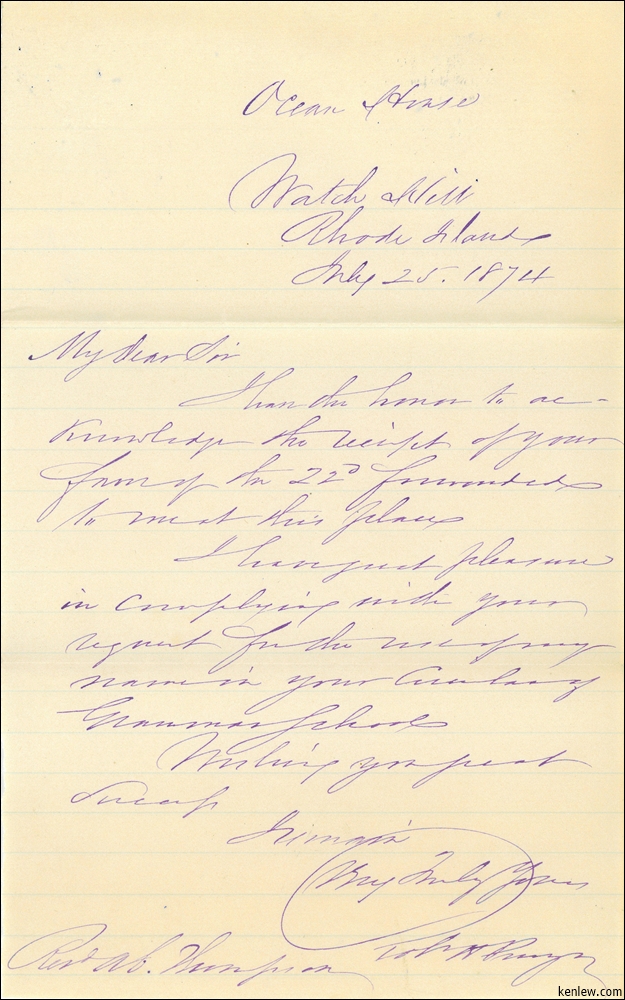 Ocean House
Watch Hill
Rhode Island
July 25. 1874
My Dear Sir
I have the honor to ac-
knowledge the receipt of your
favor of the 22d forwarded
to me at this place
I have great pleasure
in complying with your
request for the use of my
name in your Circular of
Grammar School
Wishing you great
Success
I remain
Very Truly Yours
Robt H Pruyn
Revd A C. Thompson
kenlew.com